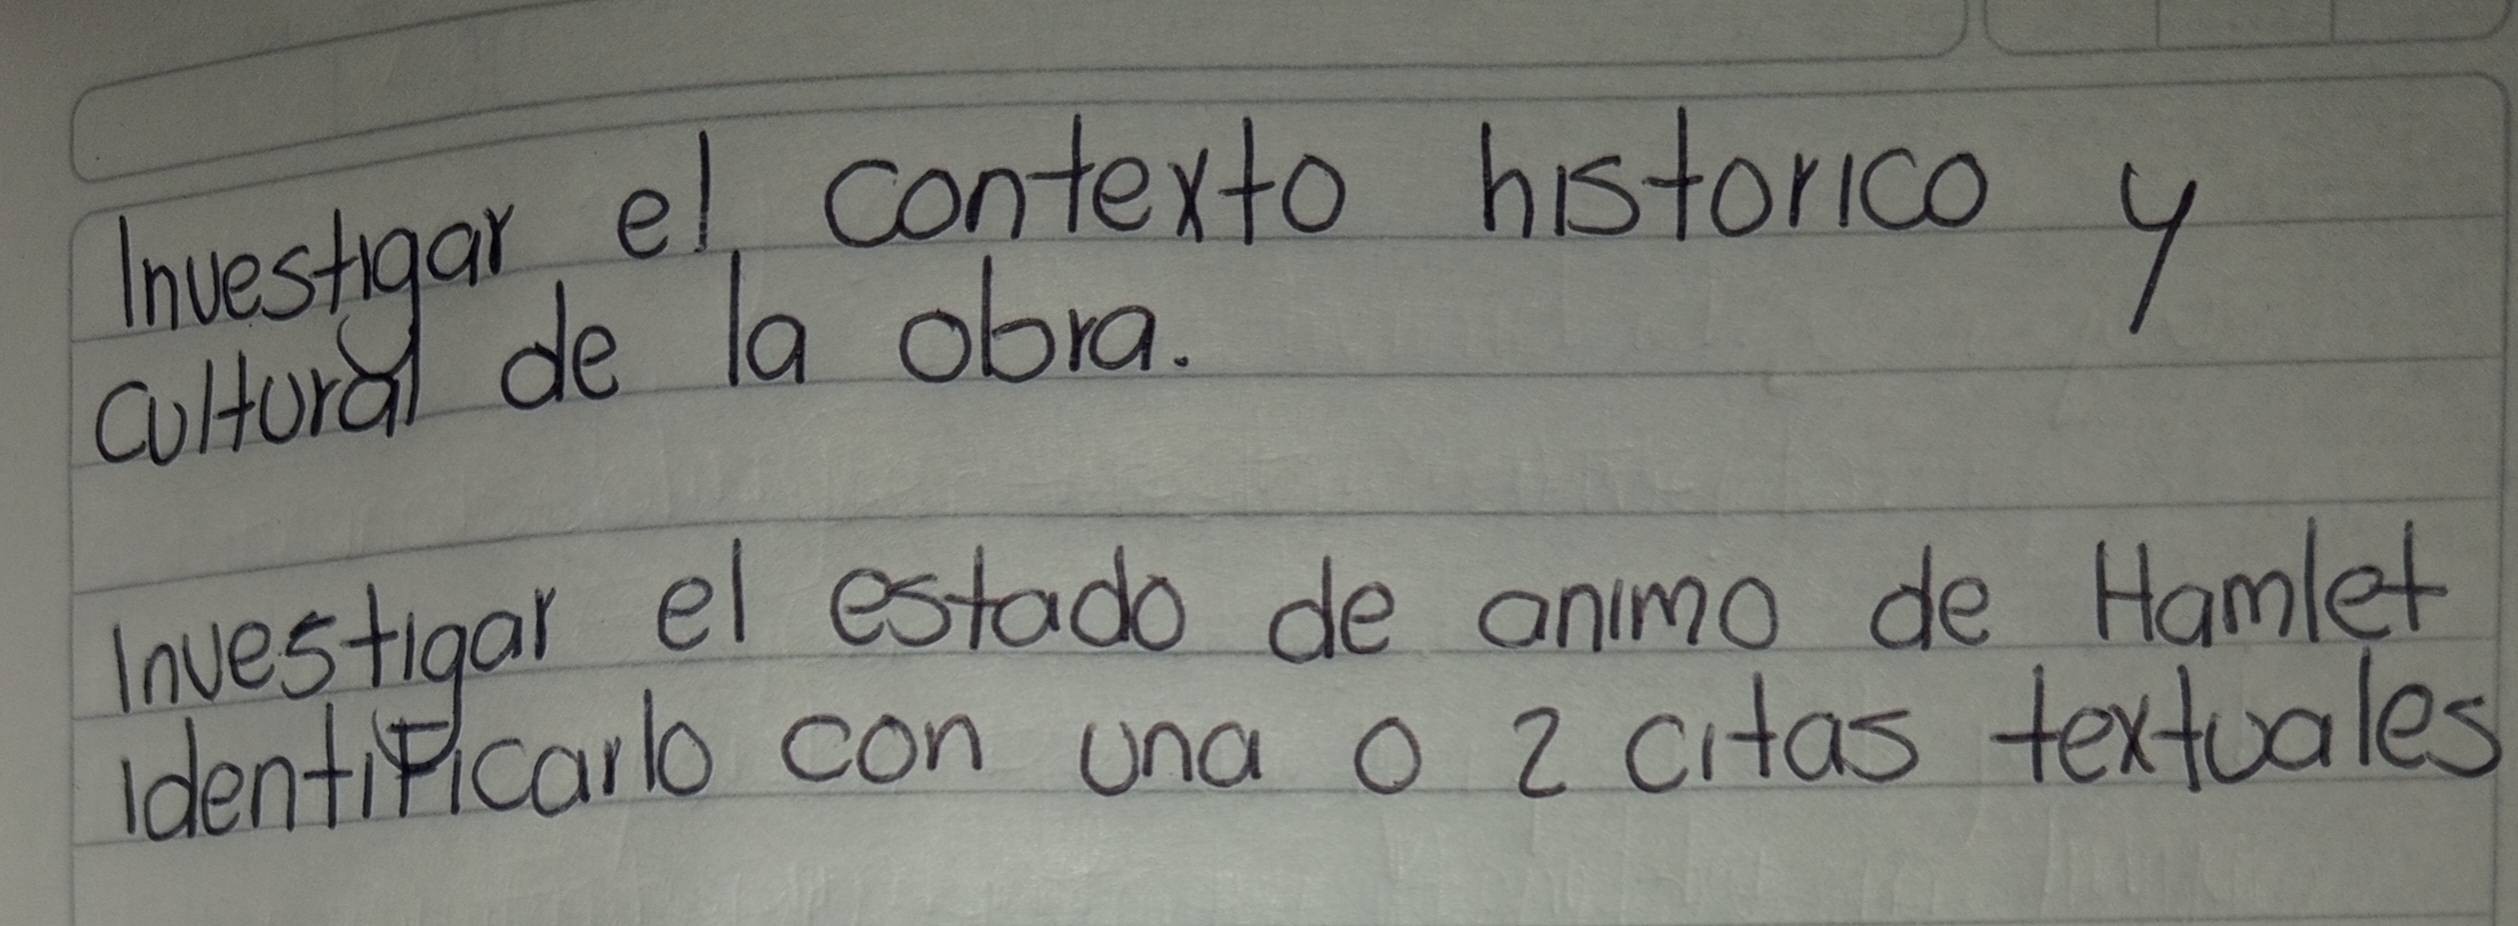 Investigar el contexto historico y
cultural de la obra.
Investigar el estado de animo de Hamlet
identificarlo con una o 2 citas textuales